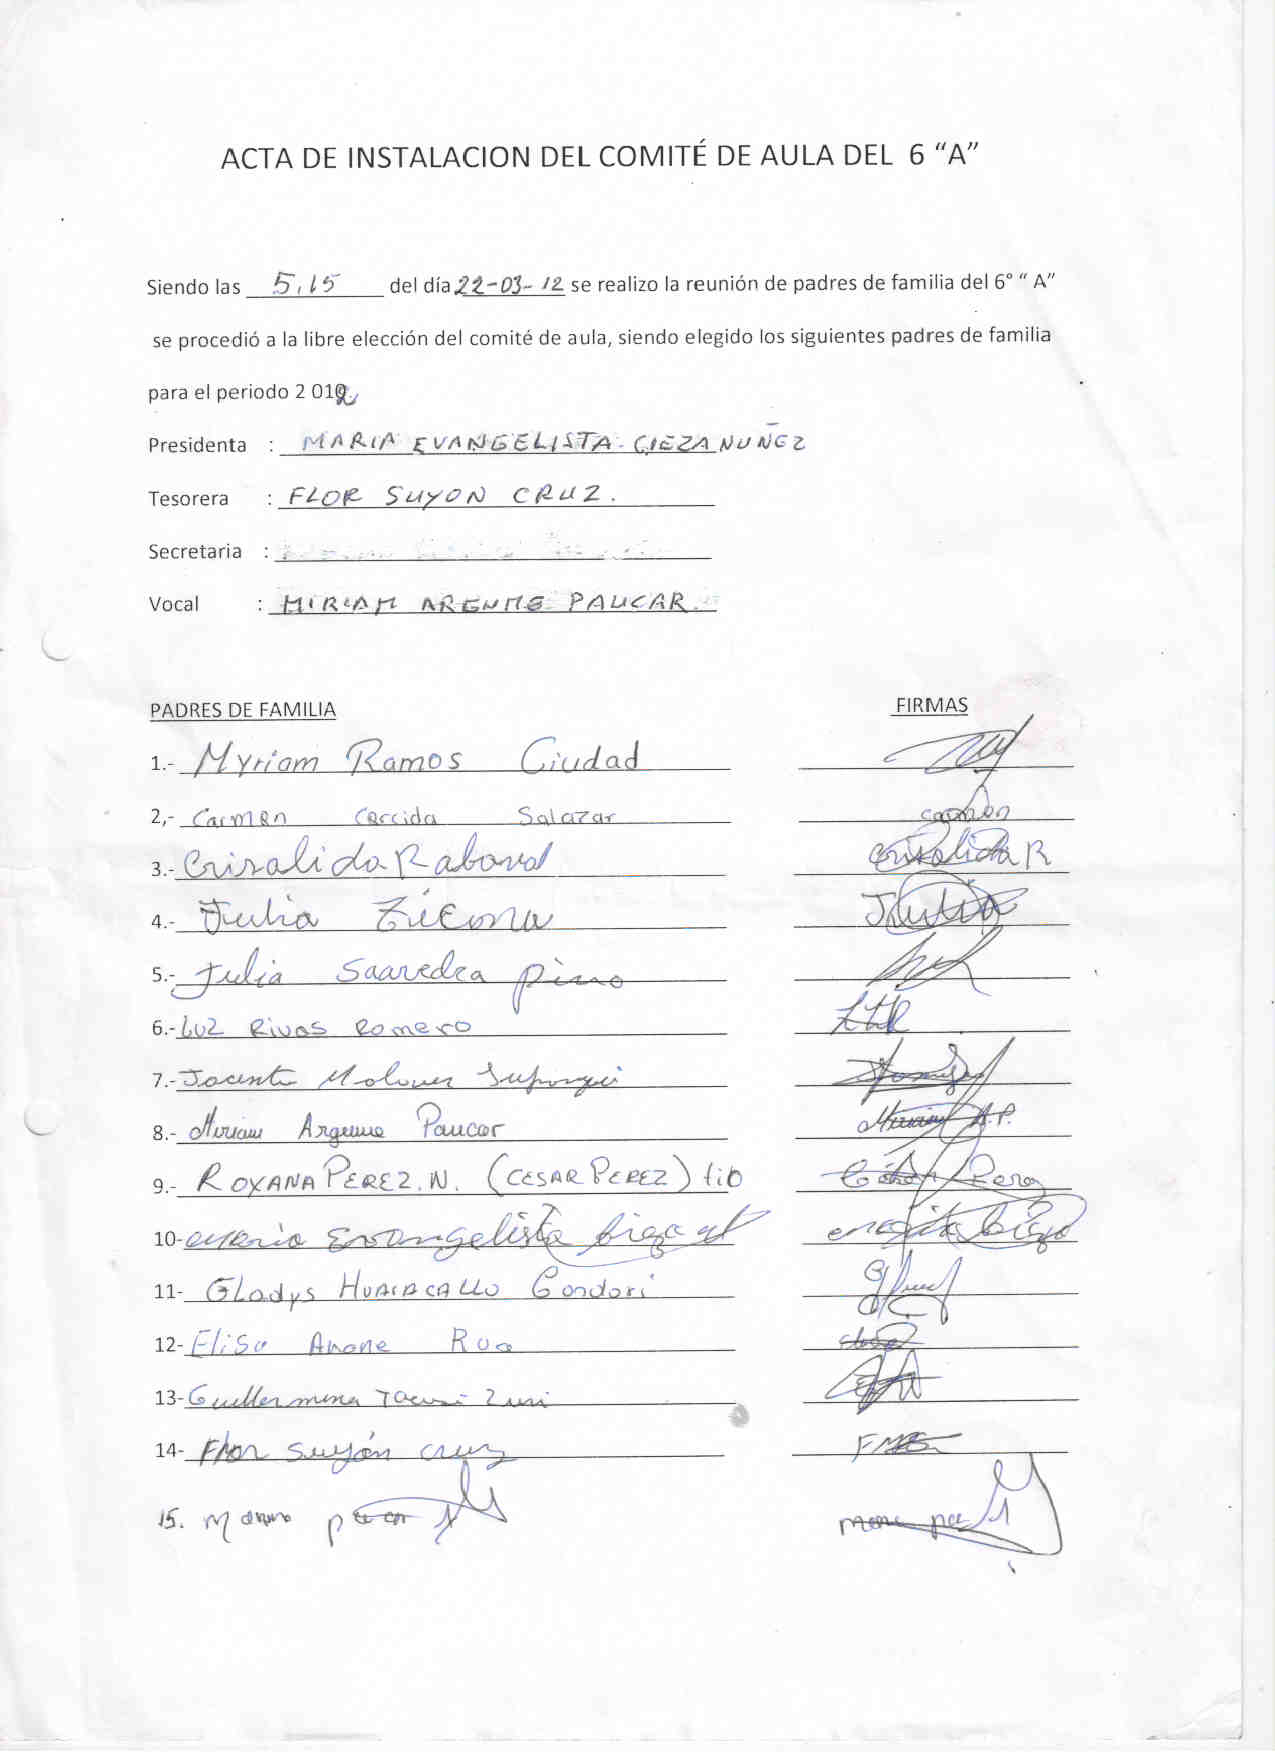 ACTA DE INSTALACION DEL COMITÉ DE AULA DEL 6 “A”
Siendo las 5,15 del día 22-03-12 se realizo la reunión de padres de familia del 6° “ A”
se procedió a la libre elección del comité de aula, siendo elegido los siguientes padres de familia
para el periodo 2 012
Presidenta : MARIA EVANGELISTA CIEZA NUÑEZ
Tesorera : FLOR SUYON CRUZ.
Secretaria :
Vocal : MIRIAM ARGUME PAUCAR.
PADRES DE FAMILIA FIRMAS
1.- Myriam Ramos Ciudad
2,- Carmen Salazar Carmen
3.- Crisalida Rabanal Crisalida R
4.- Julia Ticona Julia
5.- Julia Saavedra pino
6.- Luz Rivas Romero
7.- Jacinto
8.- Miriam Argume Paucar Miriam A.P.
9.- ROXANA PEREZ. N. (CESAR PEREZ) tio Perez
10- Maria Evangelista
11- Gladys Condori
12- Elisa Rua
13- Guillermina Zuni
14- Flor Suyón Cruz
15.